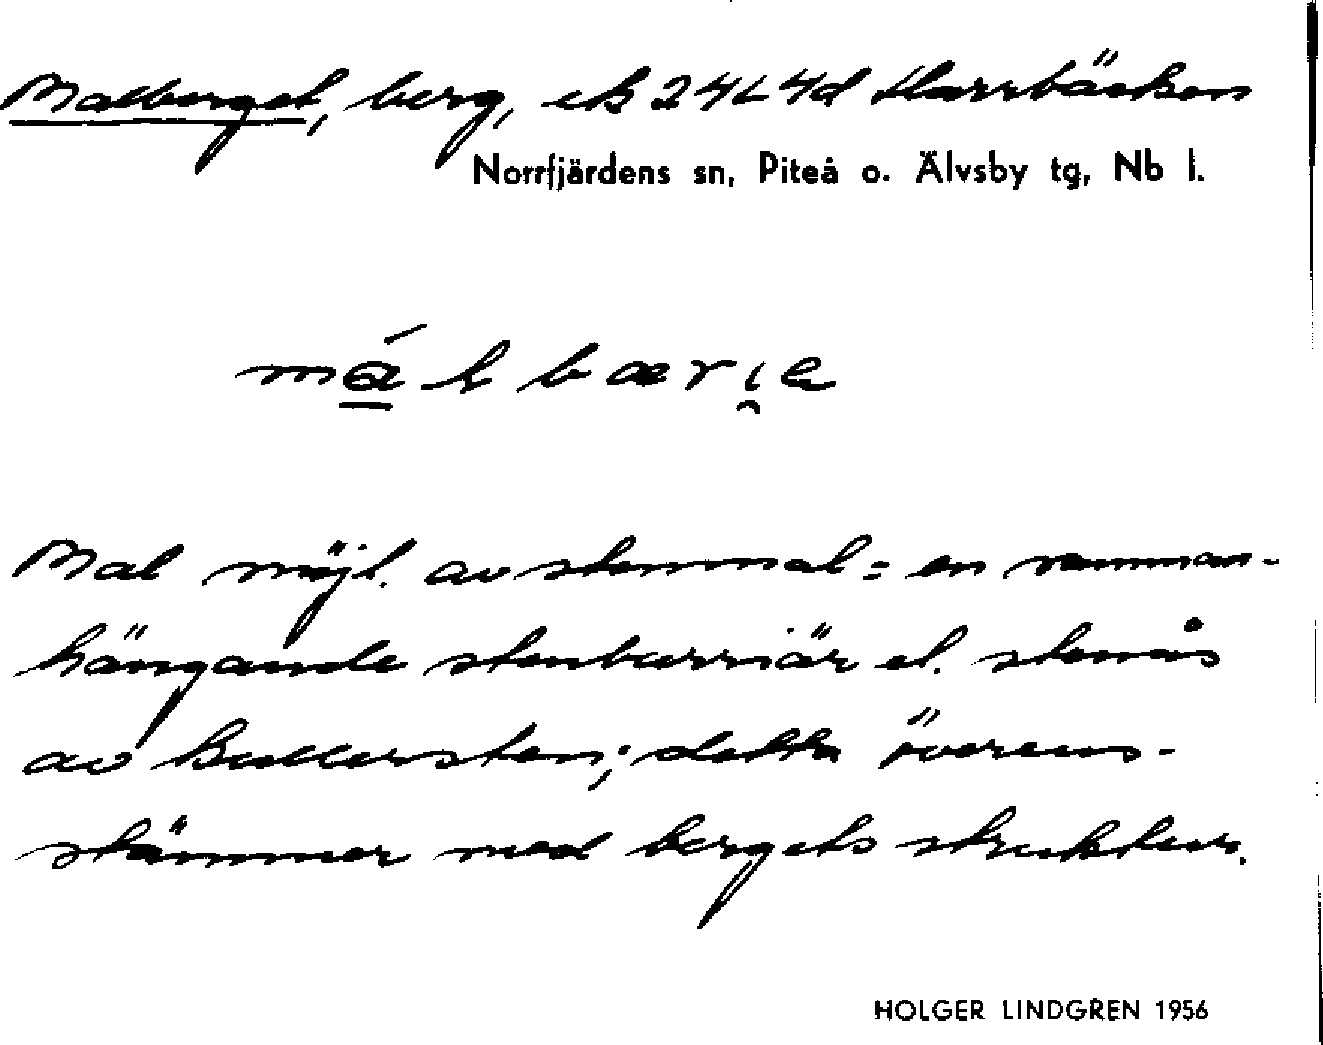 Malberget, berg, ek 24L4d Harrbäcken
Norrfjärdens sn, Piteå o. Älvsby tg, Nb l.
má̱lbæri̯e
Mal möjl. av stenmal = en samman-
hängande stenbarriär el. stenås
av kullersten; detta överens-
stämmer med bergets struktur.
HOLGER LINDGREN 1956